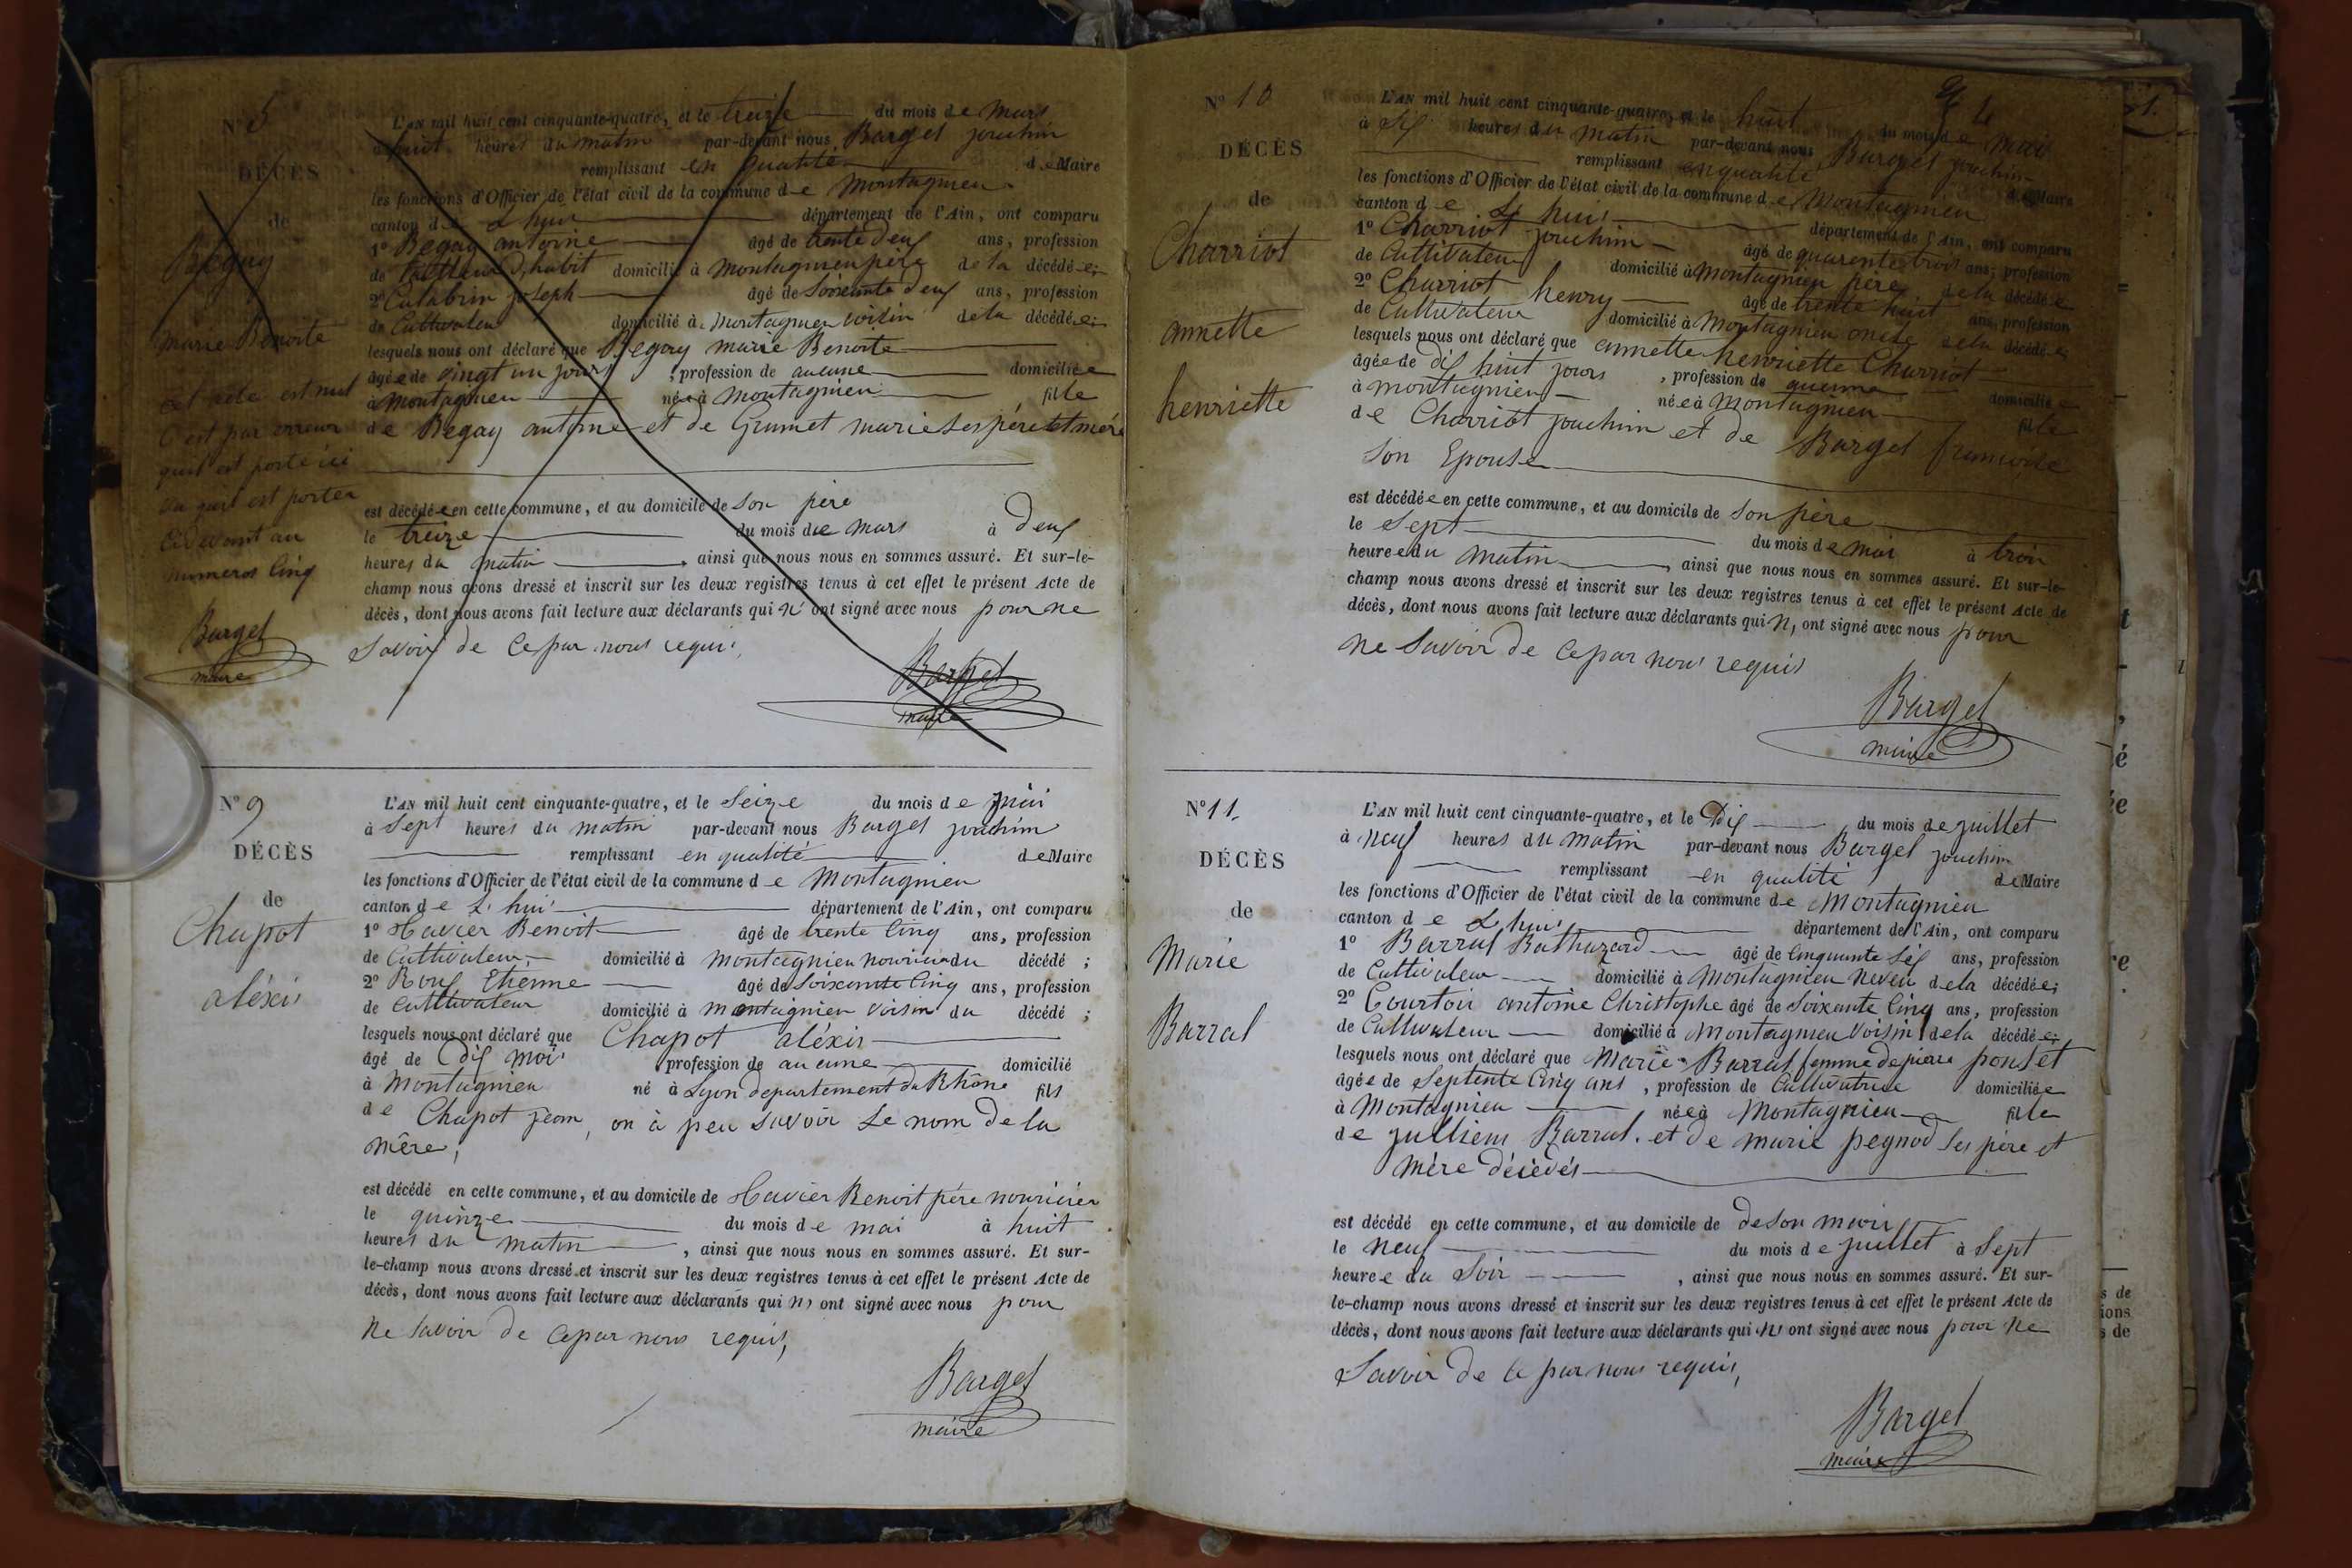 N° 5
DÉCÈS
de
Begay
marie Benoite
cet acte est nul
C'est par erreur
qu'il est porté ici
vu qu'il est porter
cidevant au
numeros Cinq
Bargel
maire
L'AN mil huit cent cinquante-quatre, et le treize du mois de mars
à huit heures du matin par-devant nous Bargel jouchin
remplissant en qualité de Maire
les fonctions d'Officier de l'état civil de la commune de Montagnieu
canton de L'huis département de l'Ain, ont comparu
1° Begay antoine âgé de trente deux ans, profession
de tailleur d'habit domicilié à montagnieu père de la décédée;
2° joseph âgé de Soixante deux ans, profession
de Cultivateur domicilié à montagnieu voisin de la décédée;
lesquels nous ont déclaré que Begay marie Benoite
âgée de vingt un jours, profession de aucune domiciliée
à Montagnieu née à Montagnieu fille
de Begay antoine et de Grumet marie ses père et mère
est décédée en cette commune, et au domicile de son père
le treize du mois de mars à deux
heures du matin, ainsi que nous nous en sommes assuré. Et sur-le-
champ nous avons dressé et inscrit sur les deux registres tenus à cet effet le présent Acte de
décès, dont nous avons fait lecture aux déclarants qui n' ont signé avec nous pour ne
Savoir de Ce par nous requis,
Bargel
maire
N° 9
DÉCÈS
de
Chapot
aléxis
L'AN mil huit cent cinquante-quatre, et le Seize du mois de mai
à Sept heures du matin par-devant nous Bargel jouchim
remplissant en qualité de Maire
les fonctions d'Officier de l'état civil de la commune de Montagnieu
canton de L'huis département de l'Ain, ont comparu
1° Xavier Benoit âgé de trente Cinq ans, profession
de Cultivateur, domicilié à Montagnieu nouricier du décédé;
2° Roux Etienne âgé de Soixante Cinq ans, profession
de Cultivateur domicilié à montagnieu voisin du décédé;
lesquels nous ont déclaré que Chapot aléxis
âgé de dix mois profession de aucune domicilié
à Montagnieu né à Lyon departement du Rhône fils
de Chapot jean, on à peu savoir Le nom de la
mère,
est décédé en cette commune, et au domicile de Xavier Benoit père nouricier
le quinze du mois de mai à huit
heures du matin, ainsi que nous nous en sommes assuré. Et sur-
le-champ nous avons dressé et inscrit sur les deux registres tenus à cet effet le présent Acte de
décès, dont nous avons fait lecture aux déclarants qui n, ont signé avec nous pour
Ne Savoir de Ce par nous requis,
Bargel
maire
N° 10
DÉCÈS
de
Charriot
annette
henriette
L'AN mil huit cent cinquante-quatre, et le huit du mois de mai
à Six heures du matin par-devant nous Bargel jouchin
remplissant en qualité de Maire
les fonctions d'Officier de l'état civil de la commune de Montagnieu
canton de L'huis département de l'Ain, ont comparu
1° Charriot jouchim âgé de quarente trois ans, profession
de Cultivateur domicilié à Montagnieu père de la décédée
2° Charriot henry âgé de trente huit ans, profession
de Cultivateur domicilié à Montagnieu oncle de la décédée
lesquels nous ont déclaré que annette henriette Charriot
âgée de dix huit jours, profession de aucune domiciliée
à montagnieu née à Montagnieu fille
de Charriot jouchim et de Bargel francoise
Son Epouse
est décédée en cette commune, et au domicile de Son père
le Sept du mois de mai à trois
heure du matin, ainsi que nous nous en sommes assuré. Et sur-le-
champ nous avons dressé et inscrit sur les deux registres tenus à cet effet le présent Acte de
décès, dont nous avons fait lecture aux déclarants qui n, ont signé avec nous pour
Ne Savoir de Ce par nous requis
Bargel
maire
N° 11.
DÉCÈS
de
Marie
Barral
L'AN mil huit cent cinquante-quatre, et le Dix du mois de juillet
à neuf heures du matin par-devant nous Bargel jouchim
remplissant en qualité de Maire
les fonctions d'Officier de l'état civil de la commune de Montagnieu
canton de L'huis département de l'Ain, ont comparu
1° Barral Balthazard âgé de Cinquante Six ans, profession
de Cultivateur domicilié à Montagnieu Neveu de la décédée;
2° Courtois antoine Christophe âgé de Soixante Cinq ans, profession
de Cultivateur domicilié à Montagnieu Voisin de la décédée;
lesquels nous ont déclaré que Marie Barral femme de pierre ponset
âgée de Septente Cinq ans, profession de Cultivatrice domiciliée
à Montagnieu née à Montagnieu fille
de julliens Barral. et de marie pegnod Ses père et
Mère décédés
est décédé en cette commune, et au domicile de de Son mari
le neuf du mois de juillet à Sept
heure du Soir, ainsi que nous nous en sommes assuré. Et sur-
le-champ nous avons dressé et inscrit sur les deux registres tenus à cet effet le présent Acte de
décès, dont nous avons fait lecture aux déclarants qui n' ont signé avec nous pour Ne
Savoir de Ce par nous requis,
Bargel
maire